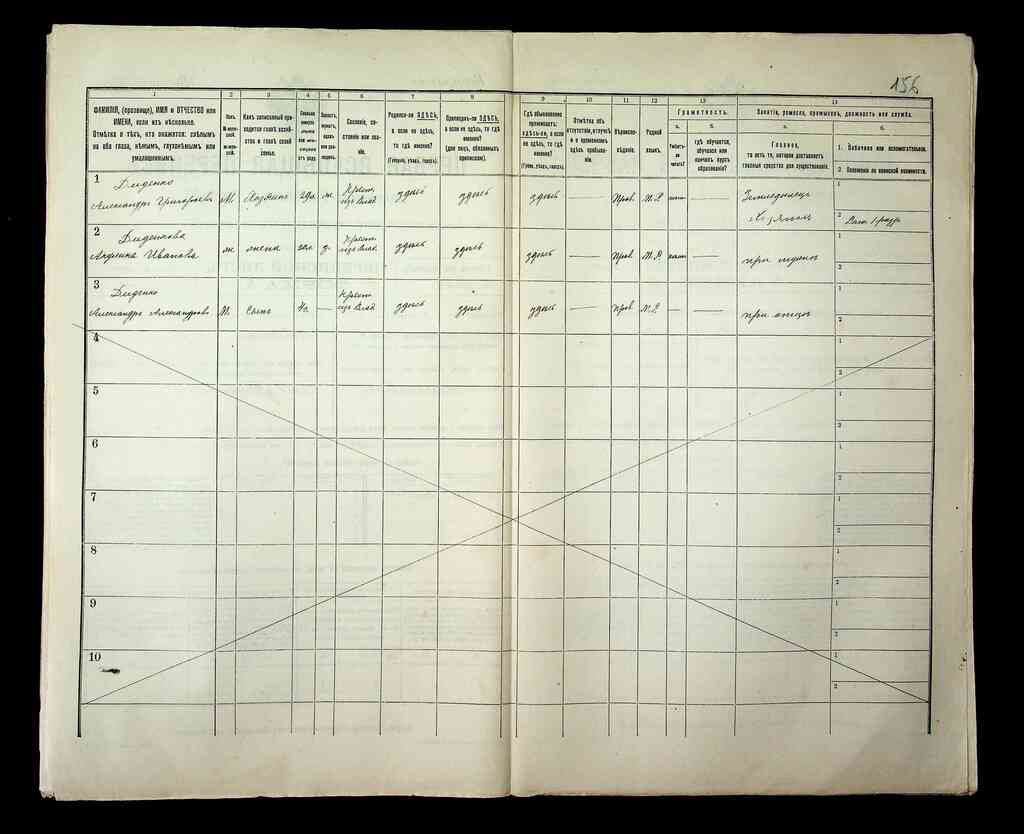 156
1 2 3 4 5 6 7 8 9 10 11 12 13 14
ФАМИЛІЯ, (прозвище), ИМЯ и ОТЧЕСТВО или
ИМЕНА, если ихъ нѣсколько.
Отмѣтка о тѣхъ, кто окажется: слѣпымъ
на оба глаза, нѣмымъ, глухонѣмымъ или
умалишеннымъ.
Полъ.
М-мужской.
Ж-женской.
Какъ записанный приходится
главѣ хозяйства
и главѣ своей
семьи.
Сословіе, состояніе
или званіе.
Родился-ли ЗДѢСЬ,
а если не здѣсь,
то гдѣ
именно?
(Губернія, уѣздъ, городъ).
Приписанъ-ли ЗДѢСЬ,
а если не здѣсь, то гдѣ
именно?
(для лицъ, обязанныхъ
припискою).
Гдѣ обыкновенно
проживаетъ:
здѣсь-ли, а если
не здѣсь, то гдѣ
именно?
(Губерн., уѣздъ, городъ).
Отмѣтка объ
отсутствіи, отлучкѣ
и о временномъ
здѣсь пребываніи.
Вѣроисповѣданіе.
Родной
языкъ.
Грамотность.
а.
Умѣетъ-ли
читать?
б.
гдѣ обучается,
обучался или
кончилъ курсъ
образованія?
Занятіе, ремесло, промыселъ, должность или служба.
а.
Главное,
то есть то, которое доставляетъ
главныя средства для существованія.
б.
1. Побочное или вспомогательное.
2. Положеніе по воинской повинности.
1
Диденко
Александръ Григорьевъ М. Хозяинъ ж. Крест. здѣсь здѣсь здѣсь — Прав. М.Р. — Земледѣлецъ
Хозяинъ
1
2
2
Диденкова
Ивановa ж жена з. Крест. здѣсь здѣсь здѣсь — Прав. М.Р. — при мужѣ
1
2
3
Диденко
Александръ Александровъ М. Сынъ — Крест. здѣсь здѣсь здѣсь — Прав. М.Р. — — при отцѣ
1
2
4
1
2
5
1
2
6
1
2
7
1
2
8
1
2
9
1
2
10
1
2